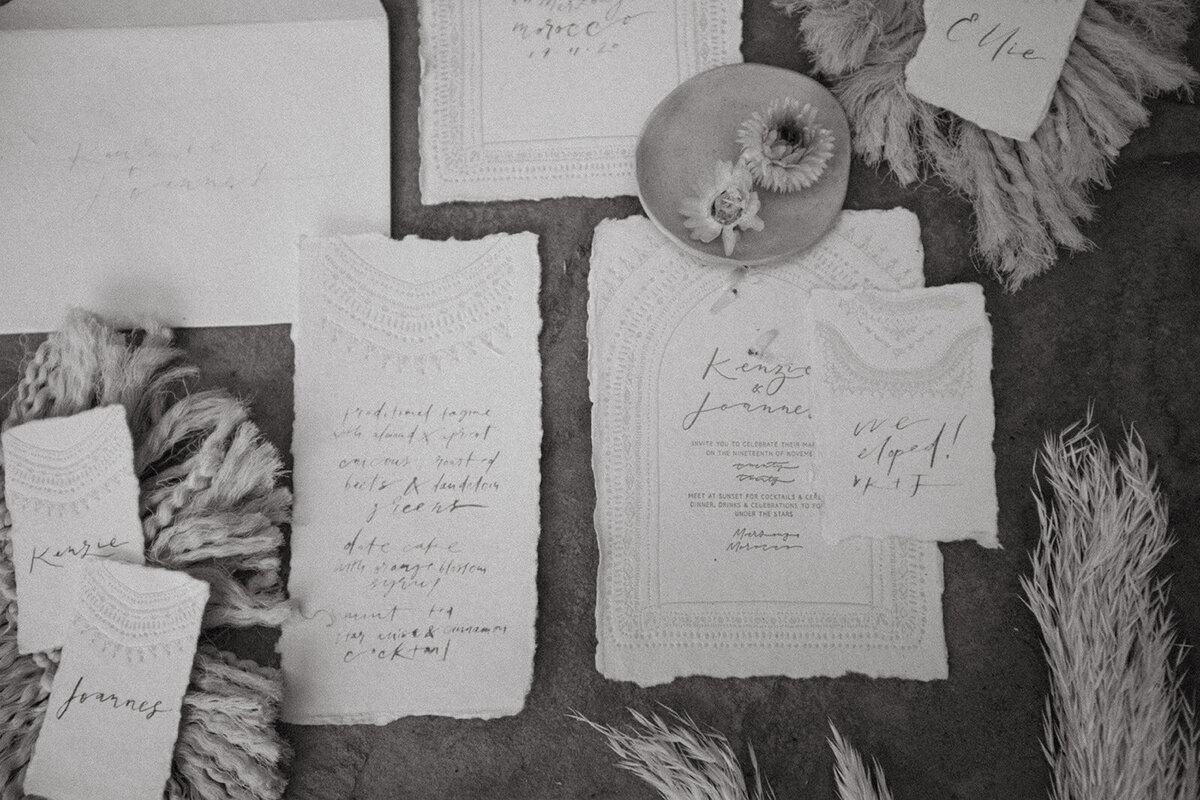 morocco
19.11.20
Ellie
traditional tagine
with almond & apricot
couscous, roasted
beets & dandelion
greens
date cake
with orange blossom
syrup
mint tea
star anise & cinnamon
cocktail
Kenzie
&
Joanne,
INVITE YOU TO CELEBRATE THEIR MAR
ON THE NINETEENTH OF NOVEMB
twenty
twenty
MEET AT SUNSET FOR COCKTAILS &
DINNER, DRINKS & CELEBRATIONS TO FO
UNDER THE STARS
Merzouga
Morocco
we
eloped!
K + J
Kenzie
Joannes